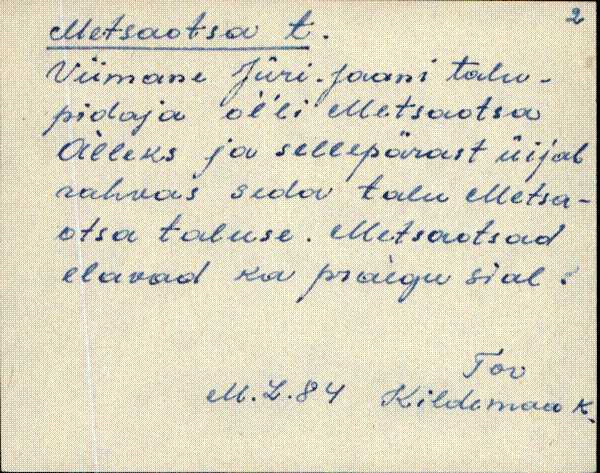 2
Metsaotsa t.
Viimane Jüri-Jaani talu-
pidaja ol'li Metsaotsa
Alleks ja sellepärast üijab
rahvas seda talu Metsa-
otsa taluse. Metsaotsad
elavad ka praegu sial.
Tov
M.L.84 Kildemaa k.